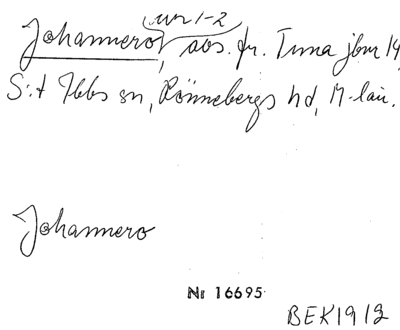 nr 1-2
Johannero, avs. fr. Tuna jbnr 14,
S:t Ibbs sn, Rönnebergs hd, M-län.
Johannero
Nr 16695
BEK 1912